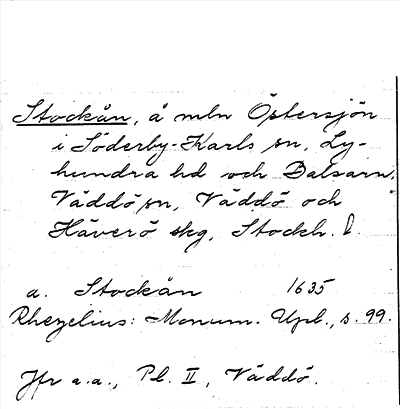 Stockån, å mln Östersjön
i Söderby-Karls sn, Ly-
hundra hd och Dalsarn,
Väddö sn, Väddö och
Häverö skg, Stockh. l.
a. Stockån 1635
Rhezelius: Monum. Upl., s. 99.
Jfr a.a., Pl. II, Väddö.